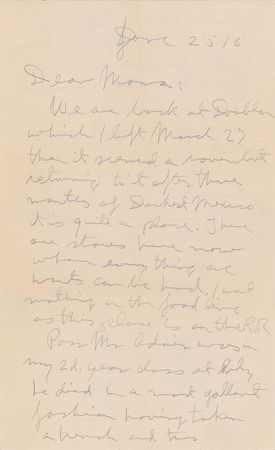 June 25 16
Dear Mama:
We are back at Dublan
which I left March 27
then it seemed a
returning to it after three
months of Darkest Mexico
it is quite a place. There
are stores here now
where everything we
wants can be had. I eat
nothing in the food line
as this place is on the R.R.
Poor Mr Adair was in
my 2d. year class at Riley
he died in a most gallant
fashion having taken
a trench and two